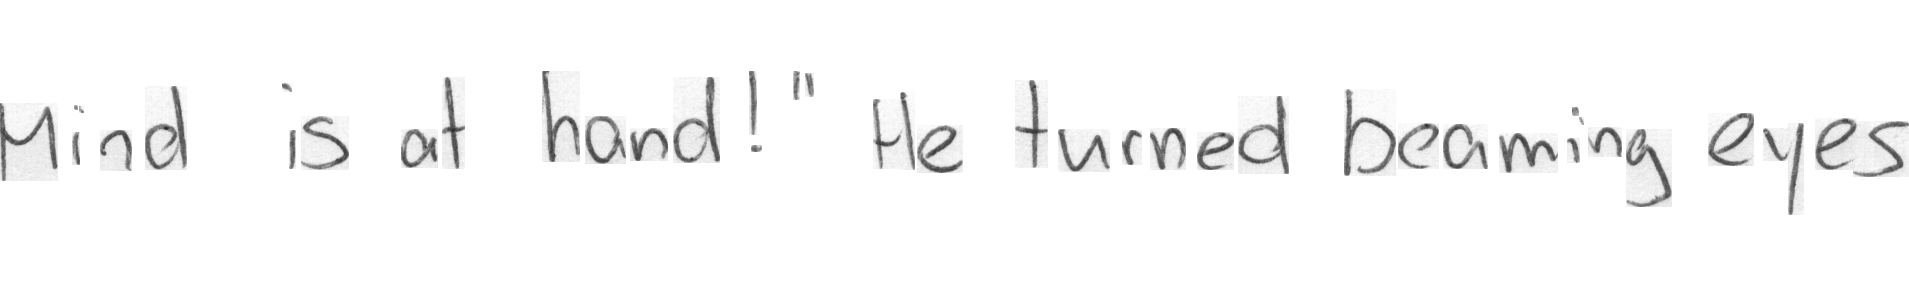 Mind is at hand!" He turned beaming eyes